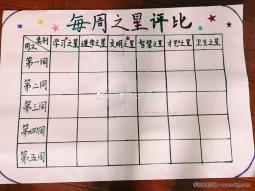 每周之星评比
类别
周次
学习之星 进步之星 文明之星 智慧之星 才艺之星 卫生之星
第一周
第二周
第三周
第四周
第五周